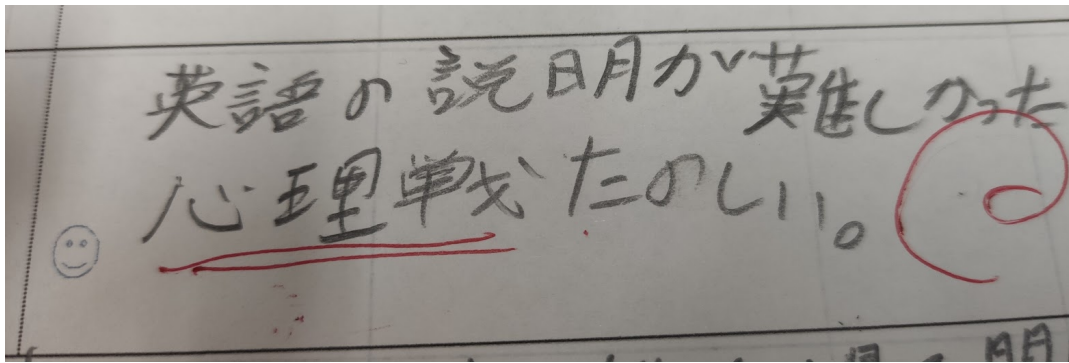 英語の説明が難しかった
心理戦たのしい。